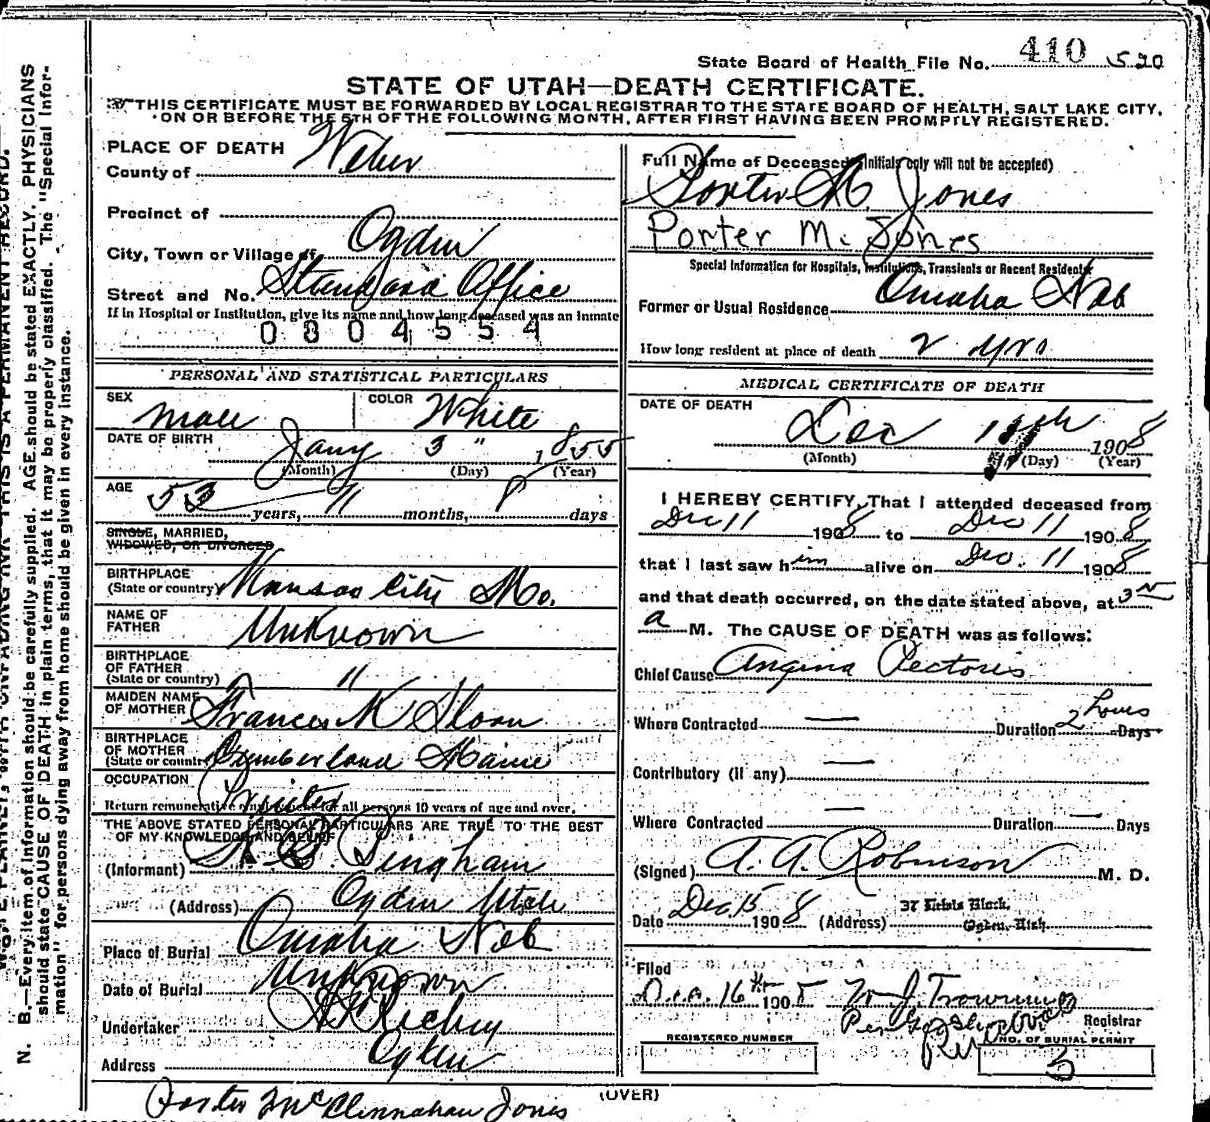 State Board of Health File No. 410 520
STATE OF UTAH—DEATH CERTIFICATE.
THIS CERTIFICATE MUST BE FORWARDED BY LOCAL REGISTRAR TO THE STATE BOARD OF HEALTH, SALT LAKE CITY,
ON OR BEFORE THE 5TH OF THE FOLLOWING MONTH, AFTER FIRST HAVING BEEN PROMPTLY REGISTERED.
PLACE OF DEATH
County of Weber
Precinct of
City, Town or Village of Ogden
Street and No. Standard Office
If in Hospital or Institution, give its name and how long deceased was an inmate
0804554
PERSONAL AND STATISTICAL PARTICULARS
SEX male COLOR White
DATE OF BIRTH Jany 3 " 1855
(Month) (Day) (Year)
AGE 53 years, 11 months, 8 days
SINGLE, MARRIED,
WIDOWED, OR DIVORCED
BIRTHPLACE
(State or country) Kansas City Mo.
NAME OF
FATHER Unknown
BIRTHPLACE
OF FATHER
(State or country) "
MAIDEN NAME
OF MOTHER Frances K Sloan
BIRTHPLACE
OF MOTHER
(State or country) Cumberland Maine
OCCUPATION Printer
Return remunerative employment for all persons 10 years of age and over.
THE ABOVE STATED PERSONAL PARTICULARS ARE TRUE TO THE BEST
OF MY KNOWLEDGE AND BELIEF
(Informant) Bingham
(Address) Ogden Utah
Place of Burial Omaha Neb
Date of Burial Unknown
Undertaker Richey
Address Ogden
Porter McClennahan Jones
Full Name of Deceased (Initials only will not be accepted)
Porter M Jones
Porter M. Jones
Special Information for Hospitals, Institutions, Transients or Recent Residents
Former or Usual Residence Omaha Neb
How long resident at place of death 2 yrs
MEDICAL CERTIFICATE OF DEATH
DATE OF DEATH Dec 11th 1908
(Month) (Day) (Year)
I HEREBY CERTIFY, That I attended deceased from
Dec 11 1908 to Dec 11 1908
that I last saw him alive on Dec. 11 1908
and that death occurred, on the date stated above, at 3
a M. The CAUSE OF DEATH was as follows:
Chief Cause Angina Pectoris
Where Contracted — Duration 2 hours Days
Contributory (if any) —
Where Contracted — Duration — Days
(Signed) A. A. Robinson M. D.
Date Dec 15 1908 (Address) 37 Block,
Filed
Dec. 16th 1908
Registrar
REGISTERED NUMBER
NO. OF BURIAL PERMIT
5
(OVER)
N. B.—Every item of information should be carefully supplied. AGE should be stated EXACTLY. PHYSICIANS
should state CAUSE OF DEATH in plain terms, that it may be properly classified. The "Special Infor-
mation" for persons dying away from home should be given in every instance.